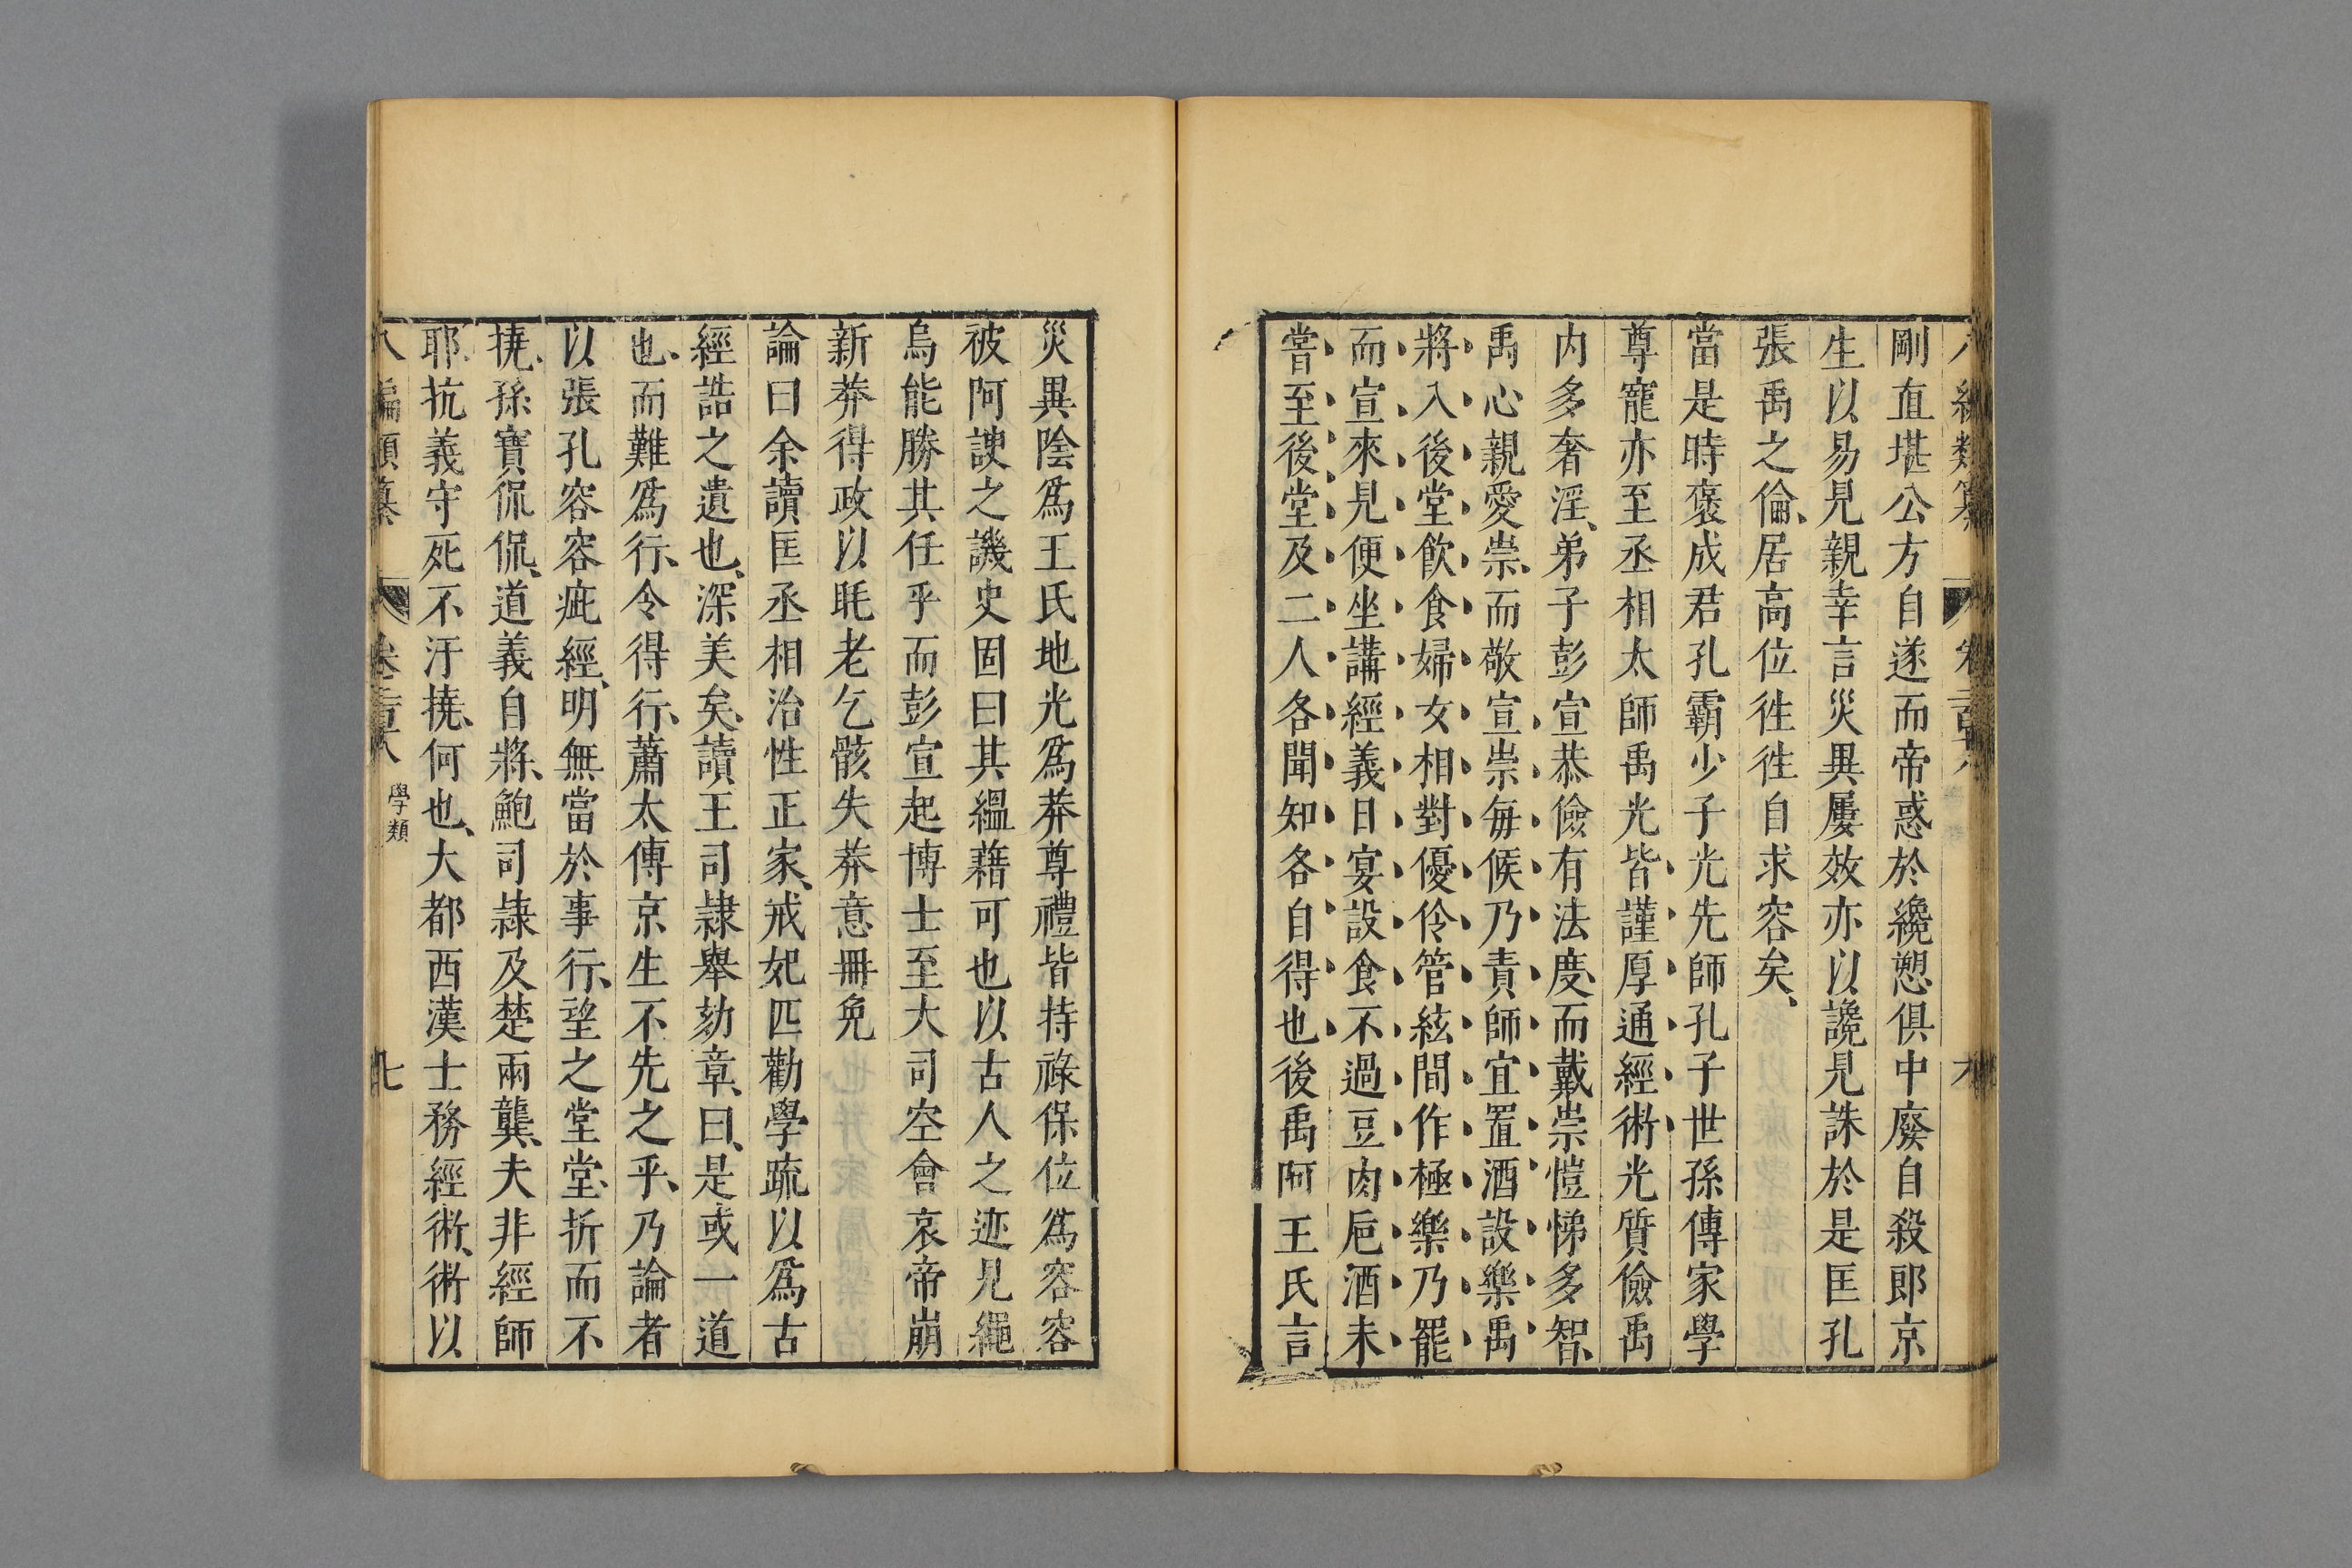 剛直堪公方自遂而帝惑於纔愬俱中廢自殺郎京
生以易見親幸言災異屢效亦以讒見誅於是匡孔
張禹之倫、居高位徃徃自求容矣、
當是時褒成君孔霸少子光先師孔子世孫傳家學
尊寵亦至丞相太師禹光皆謹厚通經術光質儉禹
内多奢淫、弟子彭宣恭儉有法度而戴崇愷悌多智、
禹心親愛崇、而敬宣崇每候乃責師宜置酒設樂禹
將入後堂飲食婦女相對優伶管絃間作極樂乃罷
而宣來見便坐講經義日宴設食不過豆肉巵酒未
嘗至後堂及二人各聞知各自得也後禹阿王氏言
災異陰爲王氏地光爲莽尊禮皆持祿保位爲容容
被阿諛之譏史固曰其緼藉可也以古人之迹見繩
烏能勝其任乎而彭宣起博士至大司空會哀帝崩
新莽得政以眊老乞骸失莽意冊免
論曰余讀匡丞相治性正家、戒妃匹勸學疏以爲古
經誥之遺也、深美矣、讀王司隷舉劾章、曰、是或一道
也、而難爲行、令得行、蕭太傅京生不先之乎、乃論者
以張孔容容疵經、明無當於事行、望之堂堂、折而不
撓、孫寶侃侃、道義自將、鮑司隷及楚兩龔、夫非經師
耶、抗義守死不汙撓、何也、大都西漢士務經術、術以
八編類纂 卷二百八 學類 七